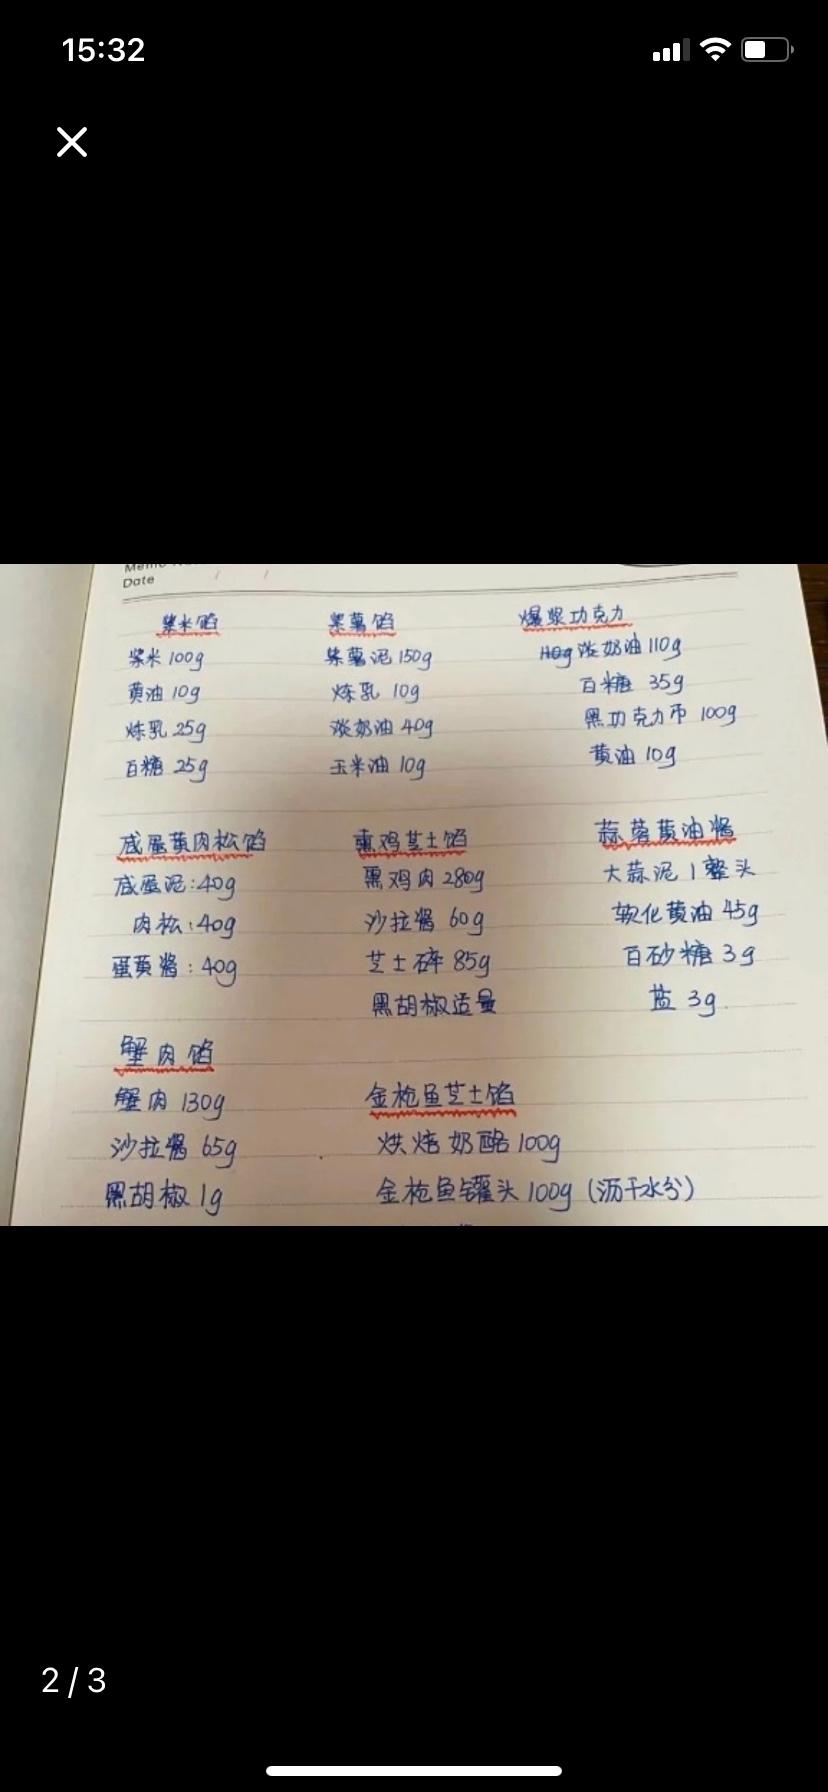 15:32
Date
紫米馅
紫米 100g
黄油 10g
炼乳 25g
白糖 25g
紫薯馅
紫薯泥 150g
炼乳 10g
淡奶油 40g
玉米油 10g
爆浆巧克力
淡奶油 110g
白糖 35g
黑巧克力币 100g
黄油 10g
咸蛋黄肉松馅
咸蛋泥:40g
肉松:40g
蛋黄酱:40g
熏鸡芝士馅
熏鸡肉 280g
沙拉酱 60g
芝士碎 85g
黑胡椒适量
蒜蓉黄油酱
大蒜泥 1整头
软化黄油 45g
白砂糖 3g
盐 3g
蟹肉馅
蟹肉 130g
沙拉酱 65g
黑胡椒 1g
金枪鱼芝士馅
烘焙奶酪 100g
金枪鱼罐头 100g (沥干水分)
2 / 3